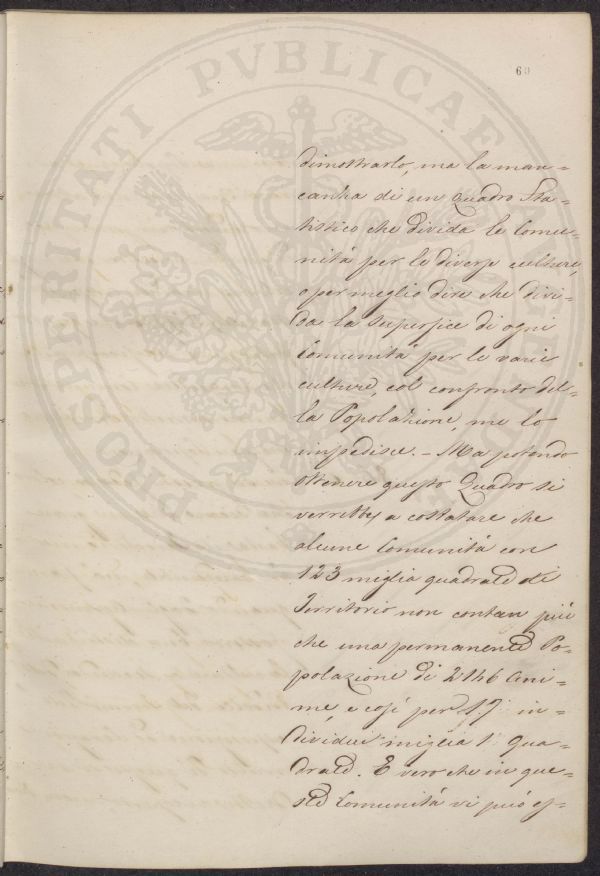 60
PROSPERITATI PVBLICAE
dimostrarlo, ma la man=
canha di un quadro Sta=
tistico che divida le Comu=
nità per le diverse culture,
o per meglio dire che divi=
da la superfice di ogni
Comunità per le varie
culture, col confronto del=
la Popolazione, me lo
impedisce. – Ma potendo
ottenere questo Quadro si
verrebbe a costatare che
alcune Comunità con
123 miglia quadrate di
Territorio non contan più
che una permanente Po=
polazione di 2146 Ani=
me, e così per 17 in=
dividui miglia 1 qua=
drate. E vero che in que=
ste Comunità vi può es=